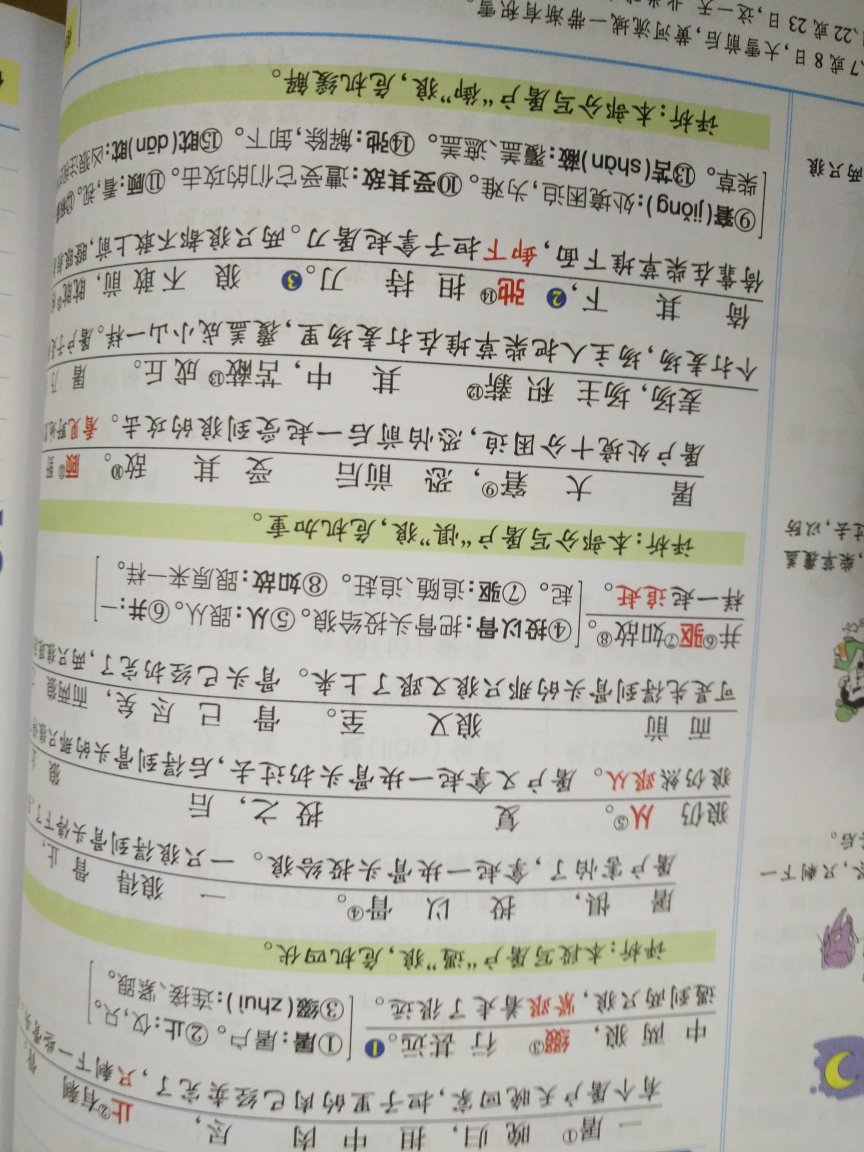 一屠①晚归，担中肉尽，止②有剩
有个屠户天晚回家，担子里的肉已经卖完了，只剩下一些骨头。
中两狼，缀③行甚远。❶
遇到两只狼，紧跟着走了很远。
①屠：屠户。②止：仅，只。
③缀(zhuì)：连接、紧跟。
详析：本段写屠户“遇”狼，危机四伏。
屠惧，投以骨④。一狼得骨止，
屠户害怕了，拿起一块骨头投给狼。一只狼得到骨头停下了
狼仍从⑤。复投之，后狼
狼仍然跟从。屠户又拿起一块骨头扔过去，后得到骨头的那只狼
而前狼又至。骨已尽矣，而两狼
可是先得到骨头的那只狼又跟了上来。骨头已经扔完了，两只狼
并⑥驱⑦如故⑧。
样一起追赶。
④投以骨：把骨头投给狼。⑤从：跟从。⑥并：一
起。⑦驱：追随、追赶。⑧如故：跟原来一样。
详析：本部分写屠户“惧”狼，危机加重。
屠大窘⑨，恐前后受其敌⑩。顾⑪野
屠户处境十分困迫，恐怕前后一起受到狼的攻击。看见野地
麦场，场主积薪⑫其中，苫蔽⑬成丘。屠乃
个打麦场，场主人把柴草堆在打麦场里，覆盖成小山一样。屠户于是
倚其下，❷弛⑭担持刀。❸狼不敢前，眈眈
倚靠在柴草堆下面，卸下担子拿起屠刀。两只狼都不敢上前，瞪眼
⑨窘(jiǒng)：处境困迫，为难。⑩受其敌：遭受它们的攻击。⑪顾：看，视。⑫
柴草。⑬苫(shàn)蔽：覆盖、遮盖。⑭弛：解除，卸下。⑮眈(dān)眈：凶狠注视
详析：本部分写屠户“御”狼，危机缓解。
7或8日，大雪前后，黄河流域一带渐有积雪。
、22或23日，这一天
，只剩下一
后。
，柴草覆盖
过去，以防
两只狼